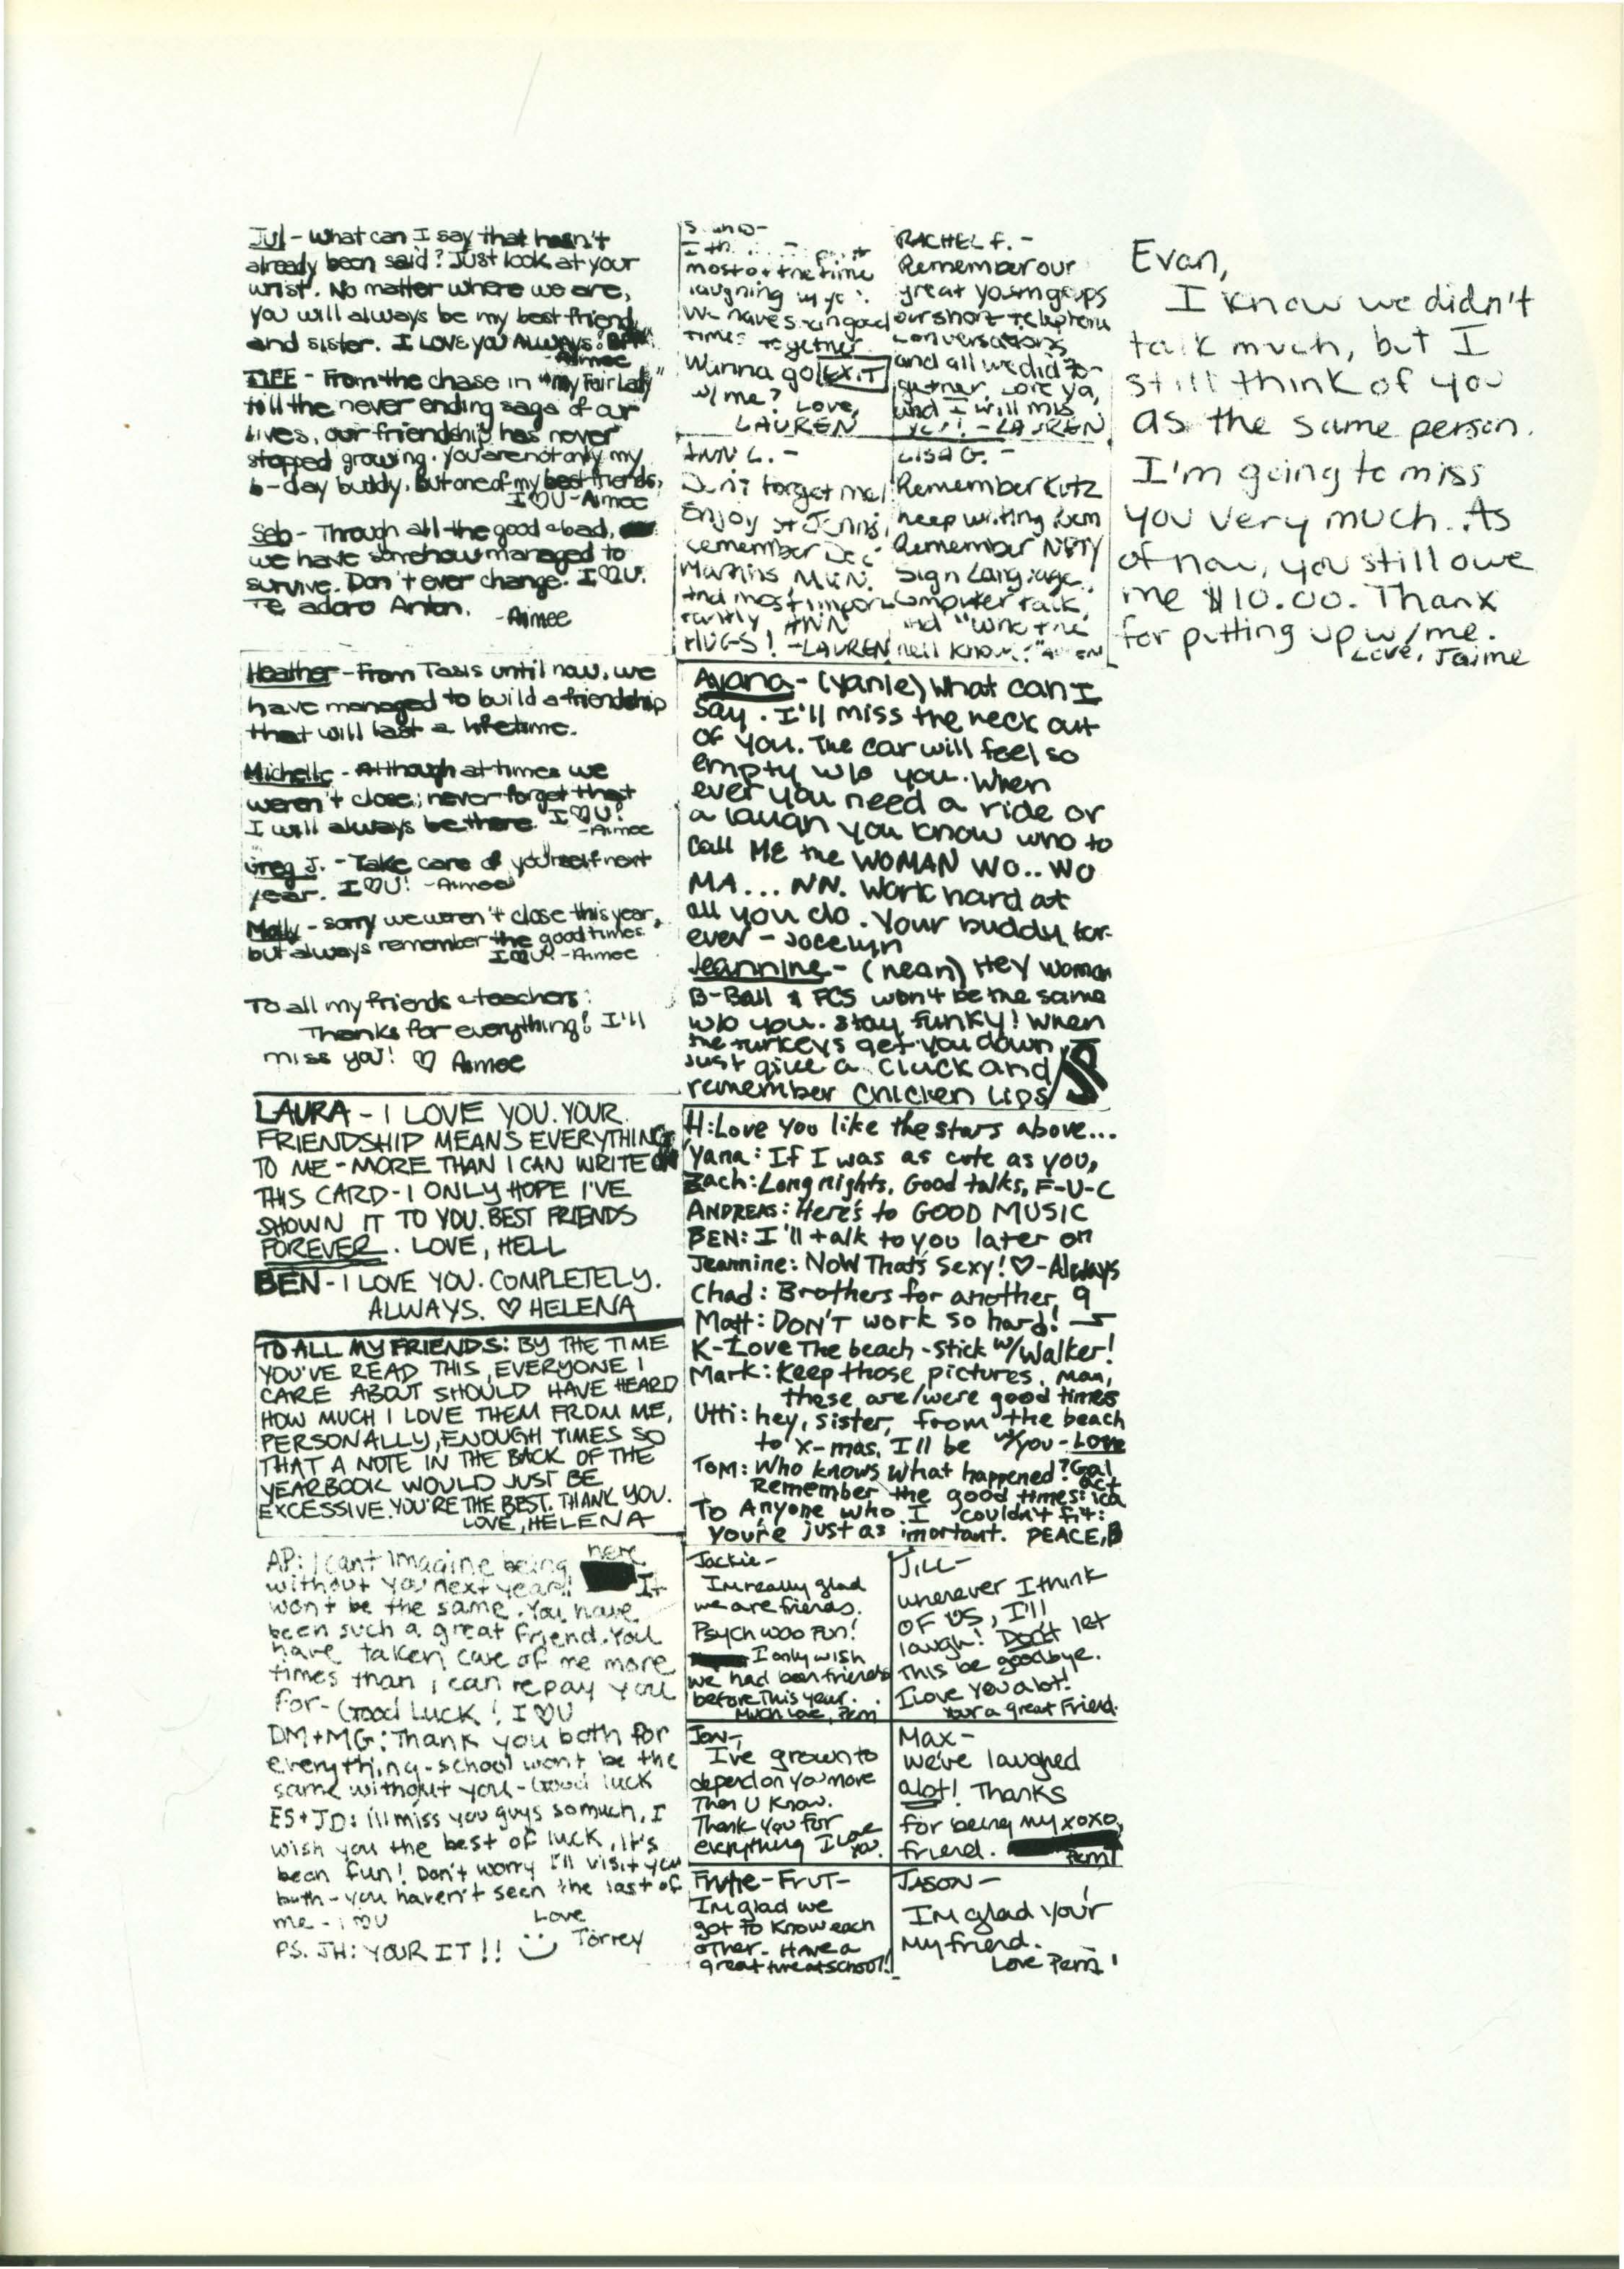 Jul - What can I say that hasn't
already been said? Just look at your
wrist. No matter where we are,
you will always be my best friend
and sister. I LOVE YOU ALWAYS!
-Aimee
TIFF - From the chase in "My Fair Lady"
till the never ending saga of our
lives, our friendship has never
stopped growing. You are not only my
b-day buddy, but one of my best friends,
I ♡ U - Aimee
Seb - Through all the good & bad,
we have somehow managed to
survive. Don't ever change. I ♡ U.
Te adoro Anton. -Aimee
Heather - From Tasis until now, we
have managed to build a friendship
that will last a lifetime.
Michelle - Although at times we
weren't close; never forget that
I will always be there. I ♡ U!
-Aimee
Greg J. - Take care of yourself next
year. I ♡ U! -Aimee
Molly - sorry we weren't close this year,
but always remember the good times.
I ♡ U - Aimee
To all my friends & teachers:
Thanks for everything! I'll
miss you! ♡ Aimee
LAURA - I LOVE YOU. YOUR
FRIENDSHIP MEANS EVERYTHING
TO ME - MORE THAN I CAN WRITE ON
THIS CARD - I ONLY HOPE I'VE
SHOWN IT TO YOU. BEST FRIENDS
FOREVER. LOVE, HELL
BEN - I LOVE YOU. COMPLETELY.
ALWAYS. ♡ HELENA
TO ALL MY FRIENDS: BY THE TIME
YOU'VE READ THIS, EVERYONE I
CARE ABOUT SHOULD HAVE HEARD
HOW MUCH I LOVE THEM FROM ME,
PERSONALLY, ENOUGH TIMES SO
THAT A NOTE IN THE BACK OF THE
YEARBOOK WOULD JUST BE
EXCESSIVE. YOU'RE THE BEST. THANK YOU.
LOVE, HELENA
AP: I can't imagine being here
without you next year!! It
won't be the same. You have
been such a great friend. You
have taken care of me more
times than i can repay you
for - Good Luck! I ♡ U
DM + MG: Thank you both for
everything - school wont be the
same without you - Good luck
ES + JD: i'll miss you guys so much, I
wish you the best of luck, it's
been fun! Don't worry I'll visit you
both - you haven't seen the last of
me - i ♡ U
Love
Torrey
PS. JH: YOUR IT!!
most of the time
laughing
We have
times together.
Wanna go EXIT
w/me? Love,
LAUREN
RACHEL F. -
Remember our
great
our short telephone
conversations
and all we did to-
gether. Love ya,
and I will miss
YOU! - LAUREN
ANN L. -
Don't forget me!
Enjoy St
remember
Martins MUN.
And most impor-
tantly ANN
HUGS! - LAUREN
LISA G. -
Remember Kutz
keep writing
Remember NFTY
Sign Language,
Computer talk,
Ayana - (Yanie) What can I
say. I'll miss the heck out
of you. The car will feel so
empty w/o you. When
ever you need a ride or
a laugh you know who to
call ME the WOMAN WO.. WO
MA... NN. Work hard at
all you do. Your buddy for-
ever - Jocelyn
Jeannine - (nean) Hey woman
B-Ball & FCS won't be the same
w/o you. Stay funky! When
the turkeys get you down,
Just give a cluck and
remember Chicken Lips
H: Love you like the stars above...
Yana: If I was as cute as you,
Zach: Long nights, Good talks, F-U-C
ANDREAS: Here's to GOOD MUSIC
BEN: I'll talk to you later on
Jeannine: NOW That's Sexy! ♡ - Always
Chad: Brothers for another 9
Matt: DON'T work so hard!
K - Love The beach - stick w/Walker!
Mark: Keep those pictures, man,
these are/were good times
Utti: hey, sister, from the beach
to x-mas, I'll be w/you - Love
Tom: Who knows what happened? Gal
Remember the good times: act
ica
To Anyone who I couldn't fit:
you're just as imortant. PEACE, B
Jackie -
Im really glad
we are friends.
Psych was Fun!
I only wish
we had been friends
before this year.
Much Love, Perri
JILL -
whenever I think
OF US, I'll
laugh! Don't let
this be goodbye.
I love you alot!
Your a great Friend.
Jon -
I've grown to
depend on you more
Then U Know.
Thank You For
everything I Love
You.
Max -
we've laughed
alot! Thanks
for being my xoxo,
friend. Perri
FruTie - FruT -
I'm glad we
got to know each
other. Have a
great time at school!
JASON -
I'm glad your
My friend.
Love Perri
Evan,
I know we didn't
talk much, but I
still think of you
as the same person.
I'm going to miss
you very much. As
of now, you still owe
me $10.00. Thanx
for putting up w/me.
Love, Jaime